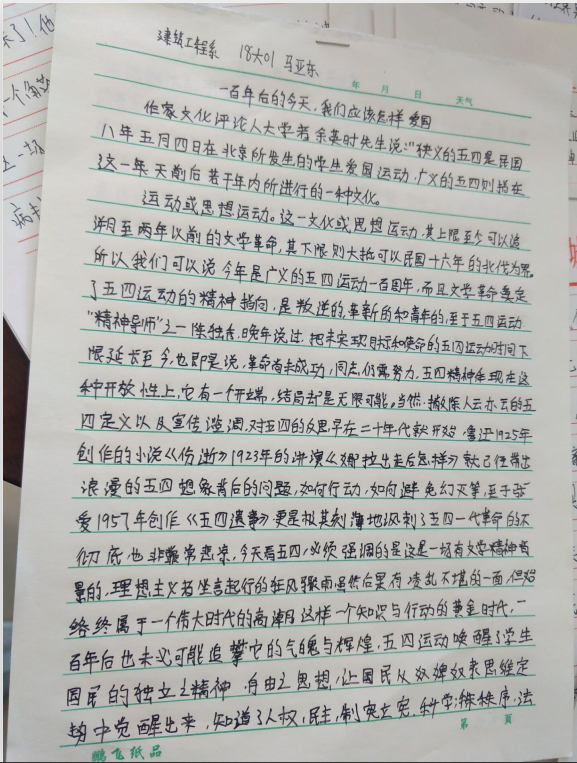 建筑工程系 18大01 马亚东
年 月 日 天气
一百年后的今天，我们应该怎样爱国
作家文化评论人大学者余英时先生说：“狭义的五四是民国
八年五月四日在北京所发生的学生爱国运动，广义的五四则指在
这一年天前后若干年内所进行的一种文化。
运动或思想运动。这一文化或思想运动，其上限至少可以追
溯至两年以前的文学革命，其下限则大抵可以民国十六年的北伐为界。
所以我们可以说今年是广义的五四运动一百周年，而且文学革命奠定
了五四运动的精神指向，是叛逆的，革新的和青年的，至于五四运动
“精神导师”之一陈独秀，晚年说过，把未实现目标和使命的五四运动时间下
限延长至今，也即是说，革命尚未成功，同志仍需努力，五四精神在现在这
种开放性上，它有一个开端，结局却是无限可能，当然，摒除人云亦云的五
四定义以及宣传滥调，对五四的反思早在二十年代就开始，鲁迅1925年
创作的小说《伤逝》1923年的讲演《娜拉出走后怎样》就已经带出
浪漫的五四想象背后的问题，如何行动，如何避免幻灭等，至于张
爱1957年创作《五四遗事》更是极其刻薄地讽刺了五四一代革命的不
彻底，也非常悲凉，今天看五四，必须强调的是这是一场有文学精神背
景的，理想主义者坐言起行的狂风骤雨虽然后果有凌乱不堪的一面，但始
终属于一个伟大时代的高潮这样一个知识与行动的黄金时代，一
百年后也未必可能追攀它的气魄与辉煌，五四运动唤醒了学生
国民的独立之精神，自由之思想，让国民从奴婢奴隶思维定
势中觉醒出来，知道了人权，民主，制宪立宪，科学，秩序，法
第 页
鹏飞纸品